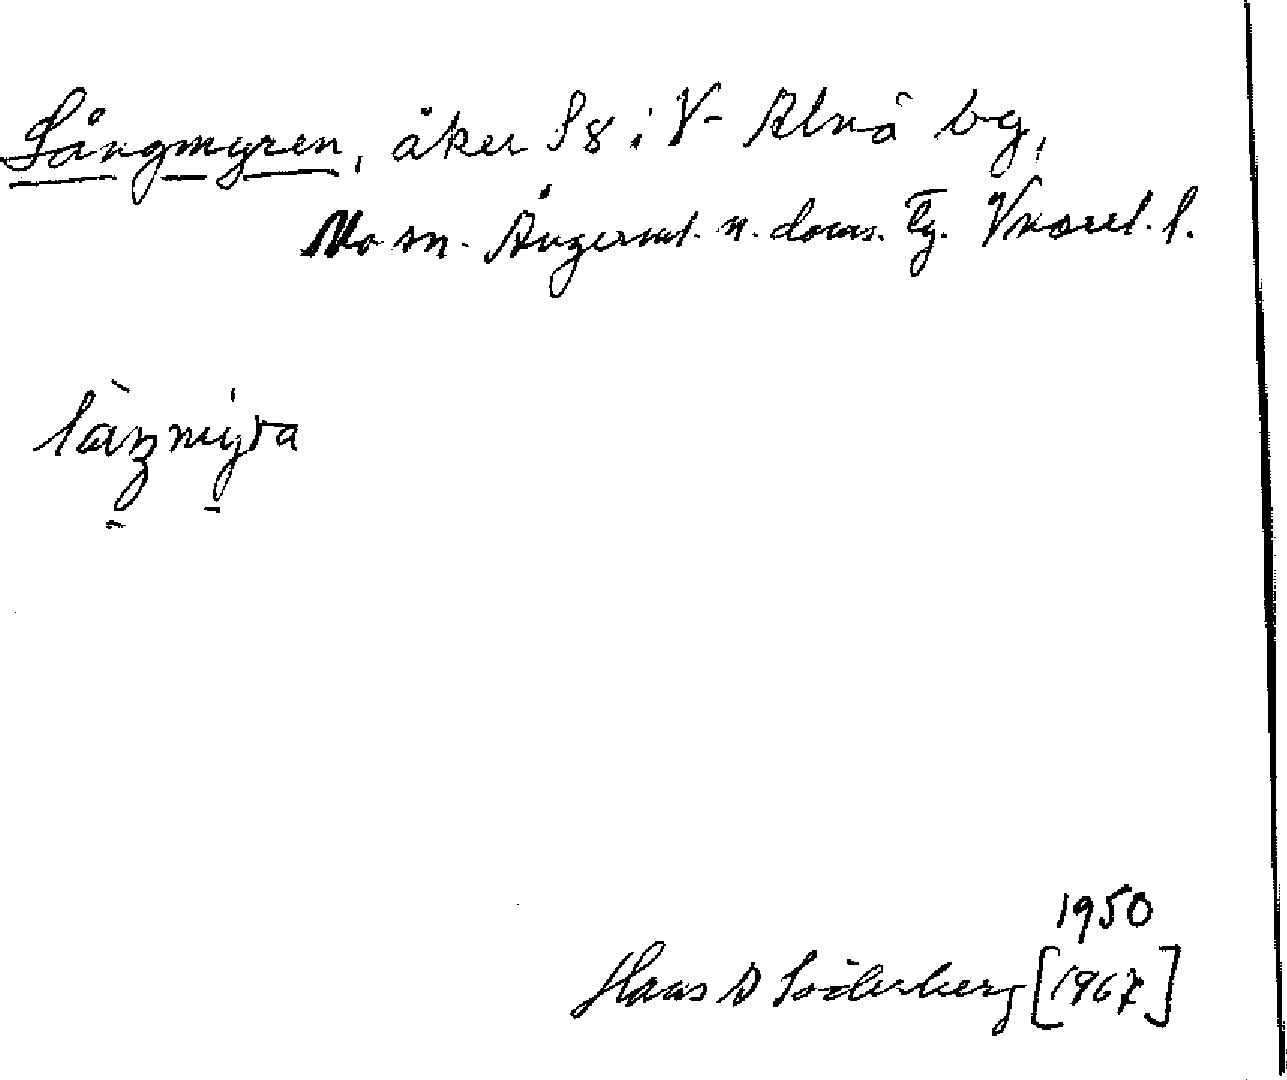 Långmyren, åker S 8 i V- Alnä bg,
Mo sn. Ångerml. n. doms. Tg. Vnorrl. l.
làŋmyra
1950
Hans A Söderberg [1967]